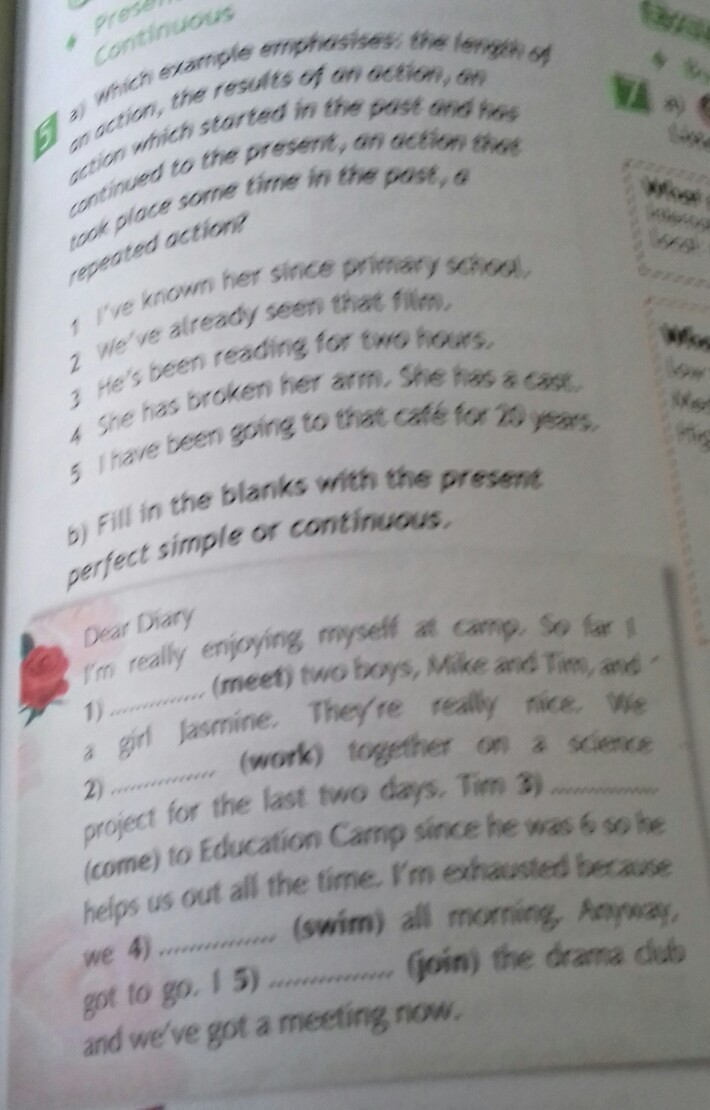 Continuous
5 a) Which example emphasises: the length of
an action, the results of an action, an
action which started in the past and has
continued to the present, an action that
took place some time in the past, a
repeated action?
1 I've known her since primary school.
2 We've already seen that film.
3 He's been reading for two hours.
4 She has broken her arm. She has a cast.
5 I have been going to that café for 20 years.
b) Fill in the blanks with the present
perfect simple or continuous.
Dear Diary
I'm really enjoying myself at camp. So far I
1) .............. (meet) two boys, Mike and Tim, and
a girl Jasmine. They're really nice. We
2) ............... (work) together on a science
project for the last two days. Tim 3) ...............
(come) to Education Camp since he was 6 so he
helps us out all the time. I'm exhausted because
we 4) ................ (swim) all morning. Anyway,
got to go. I 5) ................ (join) the drama club
and we've got a meeting now.
7 a)